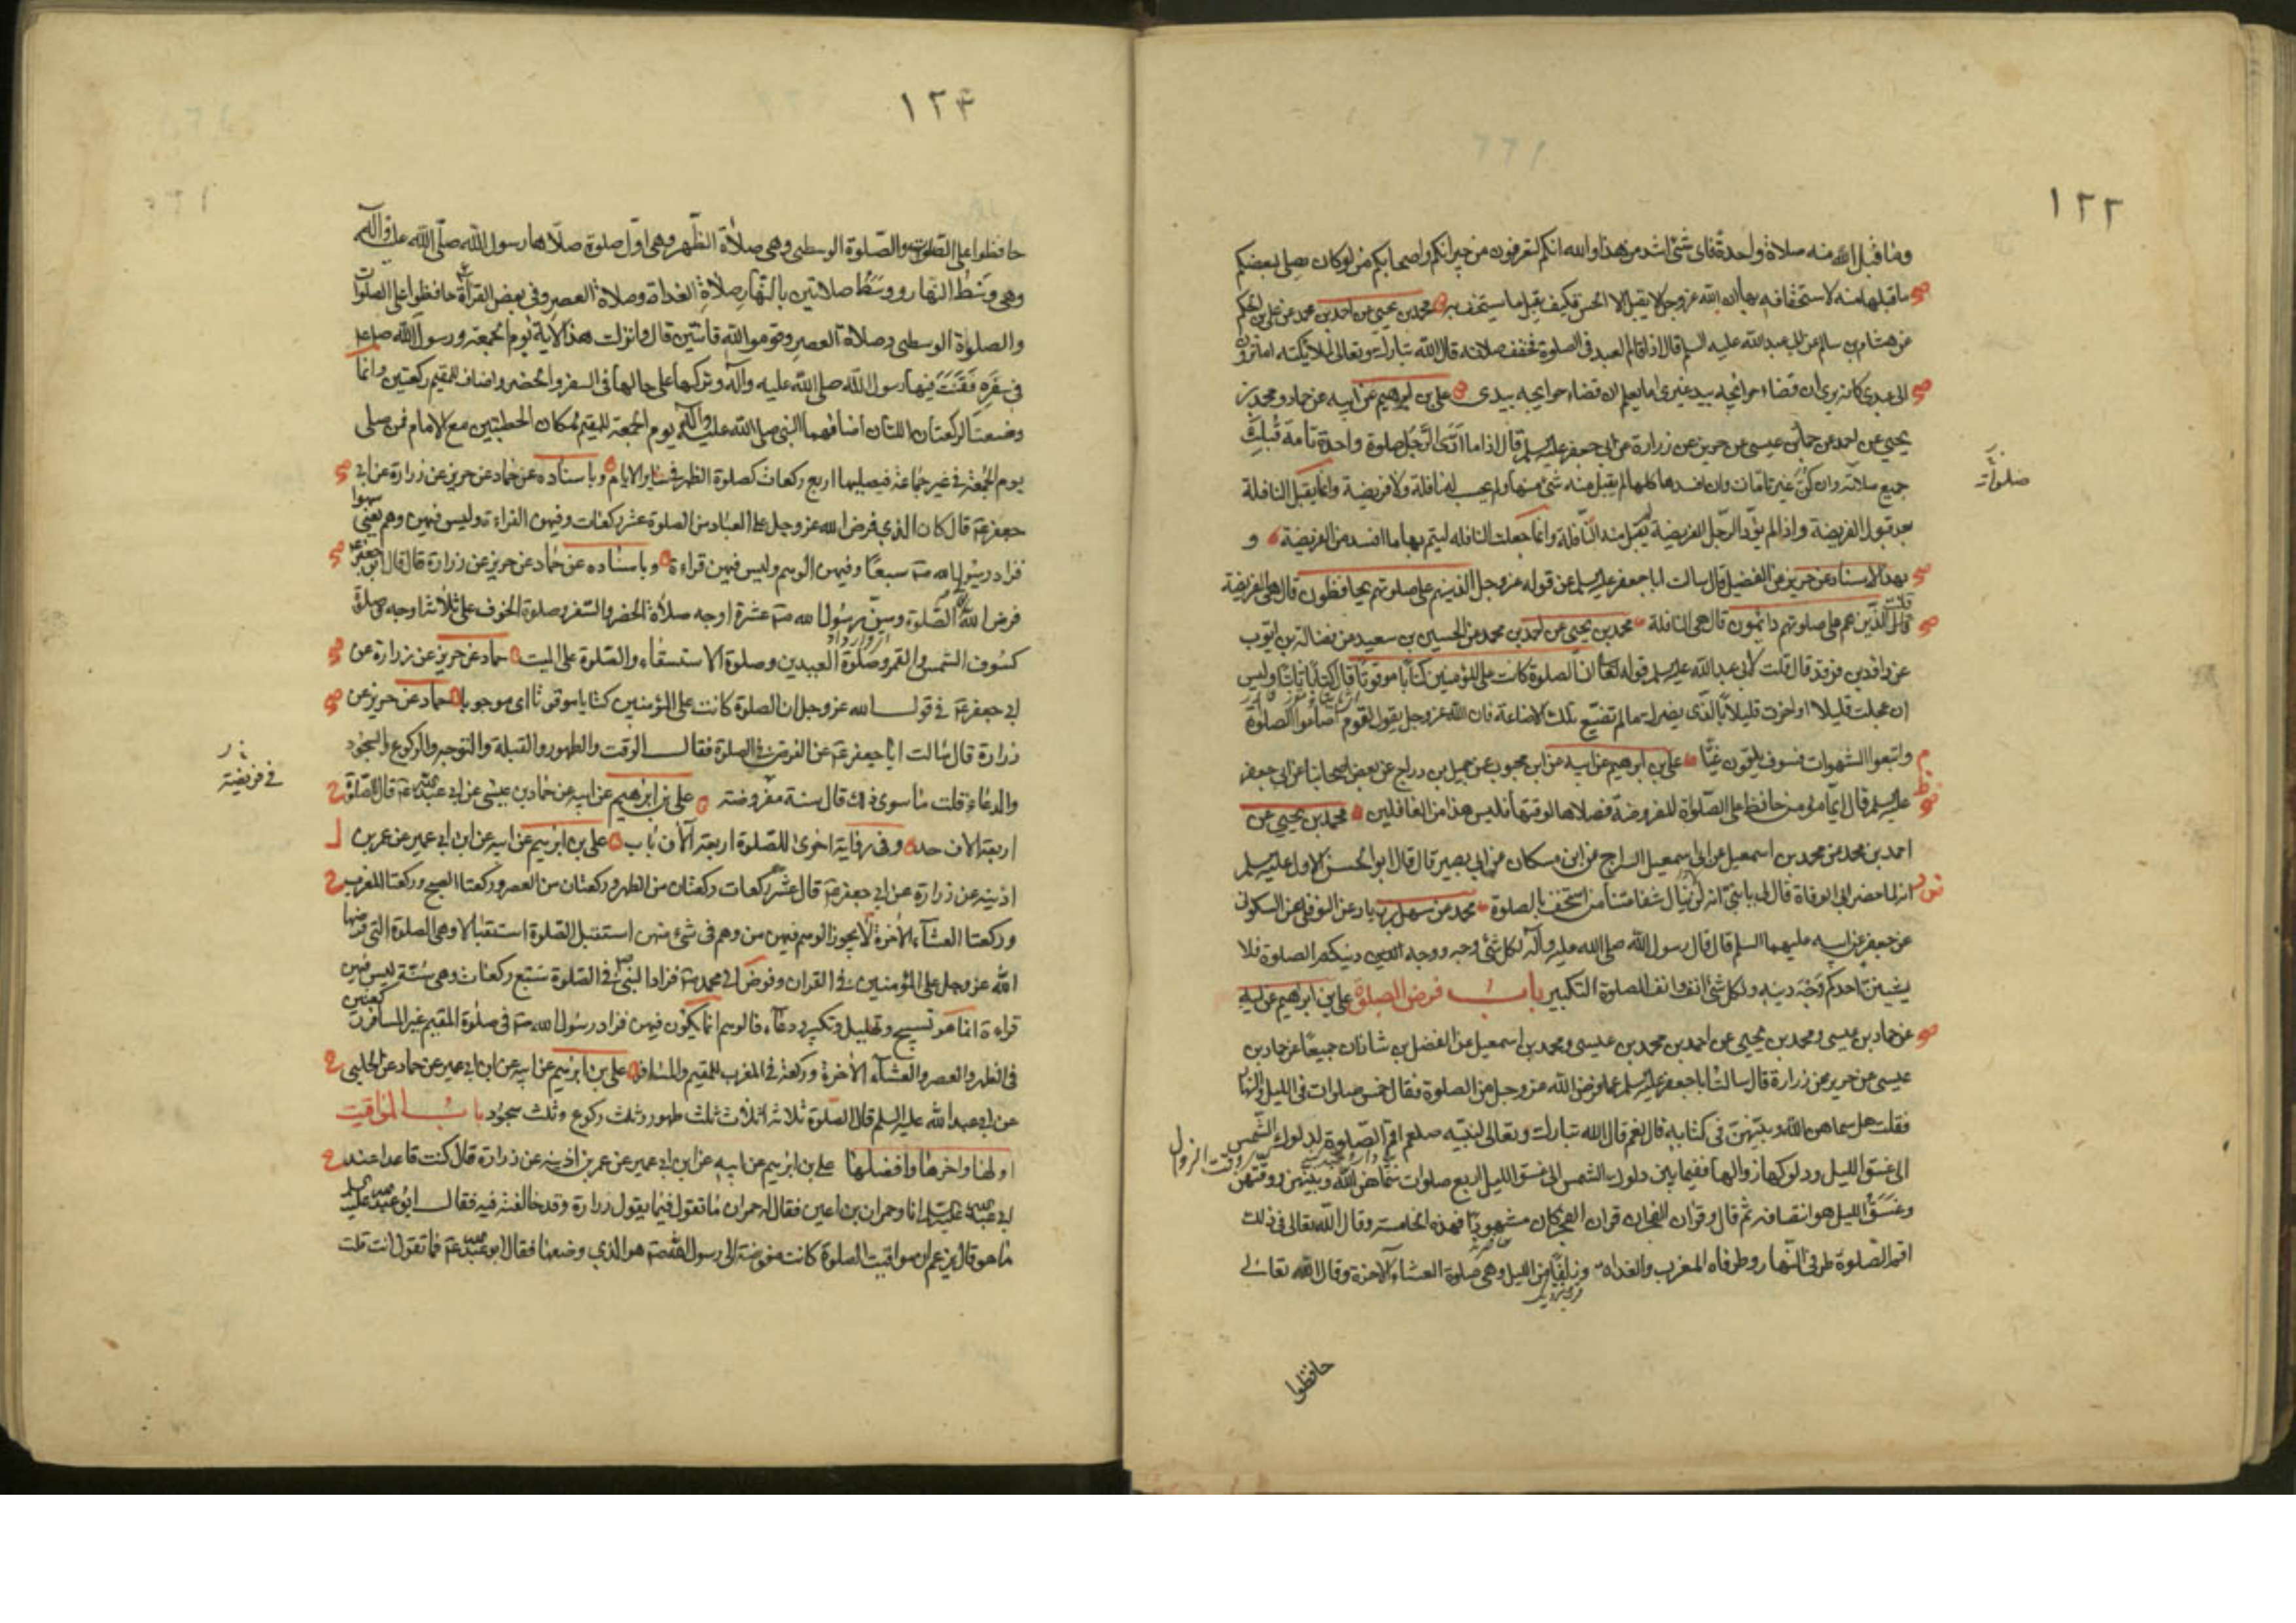 ١٢٢
وما قبل الله منه صلاة واحدة فاى شئ اشد من هذا والله انكم لتعرفون من جيرانكم واصحابكم من لو كان يصلى لبعضكم
ما قبلها منه لاستخفافه بها ان الله عز وجل لا يقبل الا الحسن فكيف يقبل ما يستخف به محمد بن يحيى عن احمد بن محمد عن على بن الحكم
عن هشام بن سالم عن ابى عبد الله عليه السلم قال اذا قام العبد فى الصلوة فخفف صلاته قال الله تبارك وتعالى لملائكته اما ترون
الى عبدى كانه يرى ان قضاء حوائجه بيد غيرى اما يعلم ان قضاء حوايجه بيدى على بن ابرهيم عن ابيه عن حماد ومحمد بن
يحيى عن احمد عن حماد بن عيسى عن حريز عن زرارة عن ابى جعفر عليه السلم قال اذا ما ادّى الرّجل صلوة واحدة تامة قُبلت
جميع صلاته وان كنّ غير تامات وان افسدها كلها لم يقبل منه شئ منها ولم يحسب له نافلة ولا فريضة وانما يقبل النافلة
صلوات
بعد قبول الفريضة واذا لم يؤد الرّجل الفريضة لم يقبل منه النّافلة وانما جعلت النافله ليتم بها ما افسد من الفريضة و
بهذا الاسناد عن حريز عن الفضيل قال سالت ابا جعفر عليه السلم عن قوله عز وجل الذينهم على صلوتهم يحافظون قال هى الفريضة
قلت الذّين هم على صلوتهم دائمون قال هى النافلة محمد بن يحيى عن احمد بن محمد عن الحسين بن سعيد عن فضالة بن ايوب
عن داود بن فرقد قال قلت لابى عبد الله عليه السلم قوله تعالى ان الصلوة كانت على المؤمنين كتابًا موقوتًا قال كتابًا ثابتًا وليس
ان عجلت قليلا او اخرت قليلًا بالّذى يضرك ما لم تضيّع تلك الاضاعة فان الله عز وجل يقول لقوم اضاعوا الصلوة
واتبعوا الشهوات فسوف يلقون غيًّا على بن ابرهيم عن ابيه عن ابن محبوب عن جميل بن دراج عن بعض اصحابنا عن ابى جعفر
عليه السلم قال ايّما مؤمن حافظ على الصّلواة المفروضة فصلاها لوقتها فليس هذا من الغافلين محمد بن يحيى عن
احمد بن محمد عن محمد بن اسمعيل عن ابى اسمعيل السراج عن ابن مسكان عن ابى بصير قال قال ابو الحسن الاول عليه السلم
انه لما حضر ابى الوفاة قال لى يا بنىّ انه لن ينال شفاعتنا من استخف بالصلوة محمد عن سهل بن زياد عن النوفلى عن السكونى
عن جعفر عن ابيه عليهما السلم قال قال رسول الله صلى الله عليه وآله لكل شئ وجه ووجه دينكم الصلوة فلا
يشينن احدكم وجه دينه ولكل شئ انف وانف الصلوة التكبير باب فرض الصلوة على بن ابراهيم عن ابيه
عن حماد بن عيسى ومحمد بن يحيى عن احمد بن محمد بن عيسى ومحمد بن اسمعيل عن الفضل بن شاذان جميعًا عن حماد بن
عيسى عن حريز عن زرارة قال سالت ابا جعفر عليه السلم عما فرض الله عز وجل من الصلوة فقال خمس صلوات فى الليل والنهار
فقلت هل سماهن الله وبيّنهنّ فى كتابه قال نعم قال الله تبارك وتعالى لنبيّه صلعم اقم الصّلوة لدلوك الشّمس
وقت الزوال
الى غسق الليل ودلوكها زوالها ففيما بين دلوك الشمس الى غسق الليل اربع صلوات سماهن الله وبيّنهنّ ووقتهن
وغسق الليل هو انتصافه ثم قال وقرآن الفجر ان قران الفجر كان مشهودًا فهذه الخامسة وقال الله تعالى فى ذلك
اقم الصّلوة طرفى النّهار وطرفاه المغرب والغداة وزلفًا من الليل وهى صلوة العشاء الآخرة وقال الله تعالى
حافظوا
١٢٣
حافظوا على الصّلوات والصّلوة الوسطى وهى صلاة الظّهر وهى اول صلوة صلّاها رسول الله صلّى الله عليه وآله
وهى وسط النّهار ووسط صلاتين بالنّهار صلاة الغداة وصلاة العصر وفى بعض القراءة حافظوا على الصلوات
والصلواة الوسطى وصلاة العصر وقوموا لله قانتين قال وانزلت هذه الآية يوم الجمعة ورسول الله صلعم
فى سفره فقنت فيها رسول الله صلى الله عليه وآله وتركها على حالها فى السفر والحضر واضاف للمقيم ركعتين وانما
وضعت الركعتان اللتان اضافهما النبى صلى الله عليه وآله يوم الجمعة للمقيم لمكان الخطبتين مع الامام فمن صلى
يوم الجمعة فى غير جماعة فيصليها اربع ركعات كصلوة الظهر فى ساير الايام وباسناده عن حماد عن حريز عن زرارة عن ابى
جعفر ع قال كان الذى فرض الله عز وجل على العباد من الصلوة عشر ركعات وفيهن القراءة وليس فيهن وهم يعنى سهوا
فزاد رسول الله ص سبعًا وفيهن الوهم وليس فيهن قراءة وباسناده عن حماد عن حريز عن زرارة قال قال ابو جعفر ع
فرض الله الصّلوة وسنّ رسول الله ص عشرة اوجه صلاة الحضر والسّفر وصلوة الخوف على ثلاثة اوجه وصلوة
كسوف الشمس والقمر وصلوة العيدين وصلوة الاستسقاء والصّلوة على الميت حماد عن حريز عن زرارة عن
ابى جعفر ع فى قول الله عز وجل ان الصلوة كانت على المؤمنين كتابا موقوتا اى موجوبا حماد عن حريز عن
زرارة قال سالت ابا جعفر ع عن الفرض فى الصلوة فقال الوقت والطهور والقبلة والتوجه والركوع والسجود
والدعاء قلت ما سوى ذلك قال سنة فى فريضة مفروضة على بن ابرهيم عن ابيه عن حماد بن عيسى عن ابى عبد الله ع قال الصّلوة
اربعة الاف حد وفى رواية اخرى للصّلوة اربعة آلاف باب على بن ابرهيم عن ابيه عن ابن ابى عمير عن عمر بن
اذينه عن زرارة عن ابى جعفر ع قال عشر ركعات ركعتان من الظهر وركعتان من العصر وركعتا الصبح وركعتا المغرب
وركعتا العشاء الاخرة لا يجوز الوهم فيهن من وهم فى شئ منهن استقبل الصّلوة استقبالا وهى الصلوة التى فرضها
الله عز وجل على المؤمنين فى القران وفوض الى محمد ص فزاد النبى ص فى الصلوة سبع ركعات وهى سُنّة ليس فيهن
قراءة انما هو تسبيح وتهليل وتكبير ودعاء فالوهم انما يكون فيهن فزاد رسول الله ص فى صلوة المقيم غير المسافر ركعتين
فى الظهر والعصر والعشاء الاخرة وركعة فى المغرب للمقيم والمسافر على بن ابرهيم عن ابيه عن ابن ابى عمير عن حماد عن الحلبى
عن ابى عبد الله عليه السلم قال الصلوة ثلاثة اثلاث ثلث طهور وثلث ركوع وثلث سجود باب المواقيت
اولها واخرها وافضلها على بن ابرهيم عن ابيه عن ابن ابى عمير عن عمر بن اذينه عن زرارة قال كنت قاعدا عند
ابى عبد الله عليه السلم انا وحمران بن اعين فقال له حمران ما تقول فيما يقول زرارة وقد خالفته فيه فقال ابو عبد الله عليه السلم
ما هو قال يزعم ان مواقيت الصلوة كانت مفوضة الى رسول الله ص هو الذى وضعها فقال ابو عبد الله ع فما تقول انت قلت